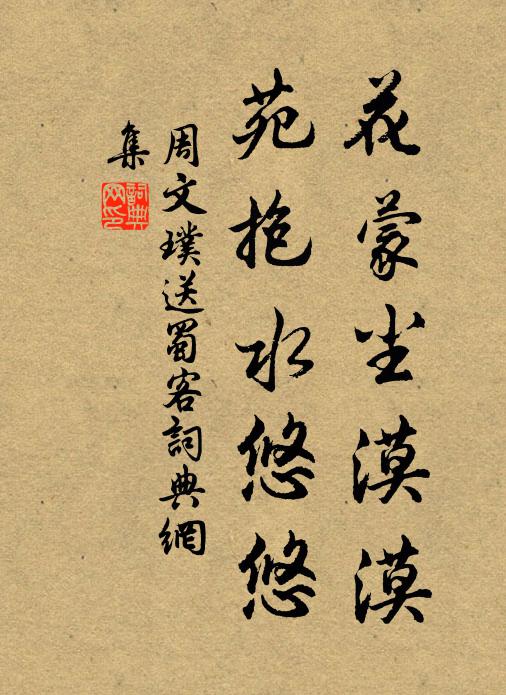 花蒙尘漠漠
苑抱水悠悠
周文璞送蜀客詞典網
集
詞典网印